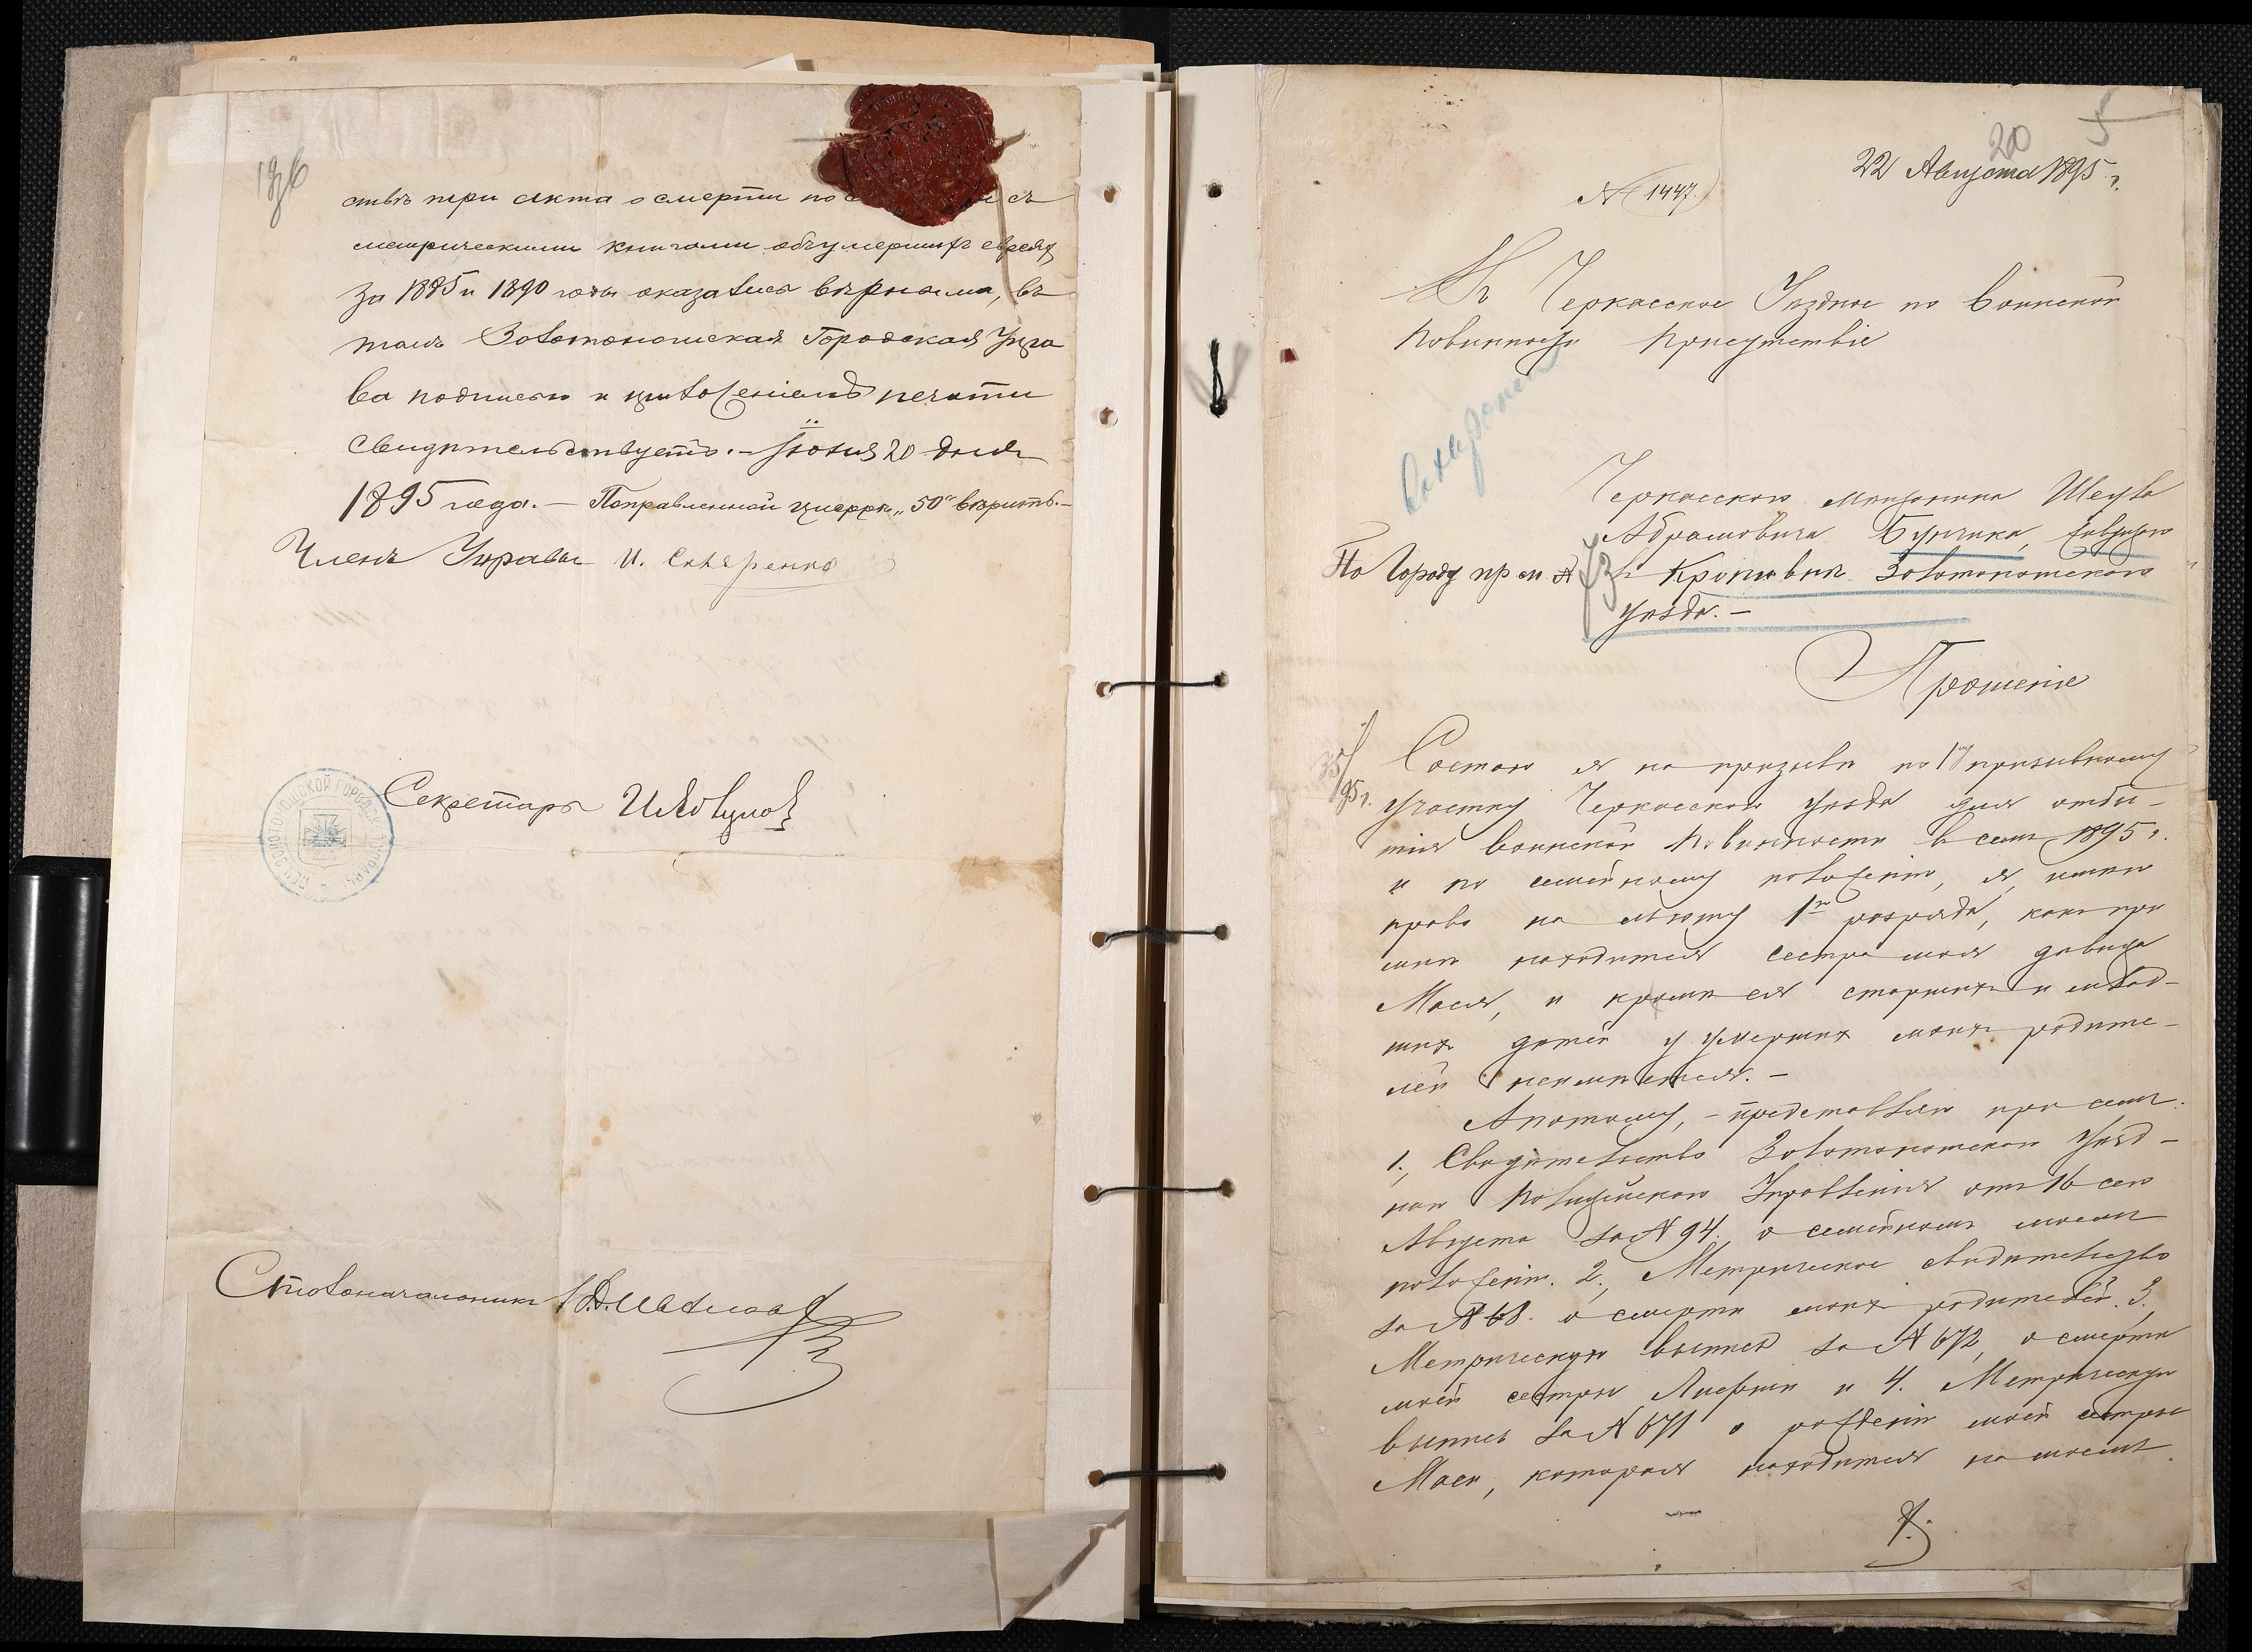 ствѣ три акта о смерти по съ
метрическими книгами объ умершихъ евреяхъ
за 1885 и 1890 годы оказались вѣрными, въ
томъ Золотоношская Городская Упра
ва подписью и приложеніемъ печати
свидѣтельствуетъ. – Іюня 20 дня
1895 года. – Поправленной цифрѣ „50" вѣрить. –
Членъ Управы И. Скляренко
Секретарь
ЗОЛОТОНОШСКОЙ ГОРОДСК. УПРАВЫ
Столоначальникъ
20 5
22 Августа 1895 г.
№ 1447.
Въ Черкасское Уѣздное по воинской
повинности присутствіе
Черкасскаго мѣщанина Шеула
Абрамовича Бунчика, живущаго
По городу пр. №
въ Кропивнѣ Золотоношскаго
уѣзда. –
Прошеніе
Состою я на призывѣ по 1му призывному
участку Черкасскаго уѣзда для отбы-
тія воинской повинности въ семъ 1895 г.
и по семейному положенію, я, имѣю
право на льготу 1го разряда, какъ при
мнѣ находится сестра моя дѣвица
Мася, и кромѣ ея старшихъ и млад-
шихъ дѣтей у умершихъ моихъ родите-
лей неимѣется. –
А потому, – представляю при семъ:
1., Свидѣтельство Золотоношскаго Уѣзд-
наго Полицейскаго Управленія отъ 16 сего
Августа за № 94. о семейномъ моемъ
положеніи. 2., Метрическое свидѣтельство
за № 68. о смерти моихъ родителей. 3.,
Метрическую выпись за № 672, о смерти
моей сестры и 4. Метрическую
выпись за № 671 о рожденіи моей сестры
Маси, которая находится на моемъ